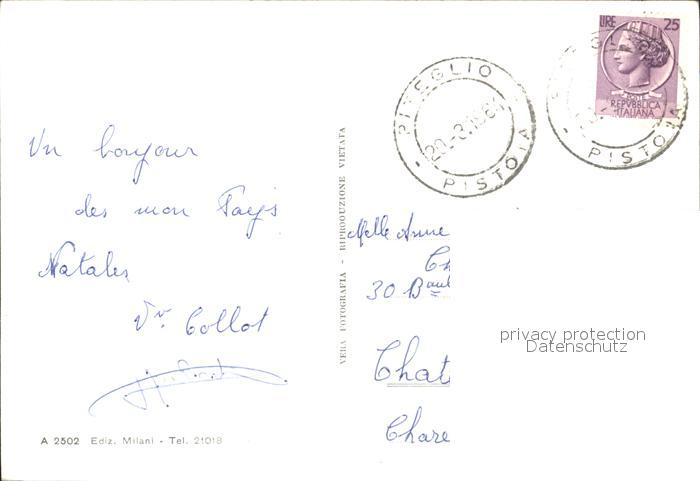 Un bonjour
des mon Pays
Natales
Vr. Collot
A 2502 Ediz. Milani - Tel. 21018
VERA FOTOGRAFIA - RIPRODUZIONE VIETATA
PITEGLIO
PISTOIA
LIRE 25
POSTE
REPVBBLICA
ITALIANA
PISTOIA
Melle Anne
Ch
30 Bd
Chat
Chare
privacy protection
Datenschutz